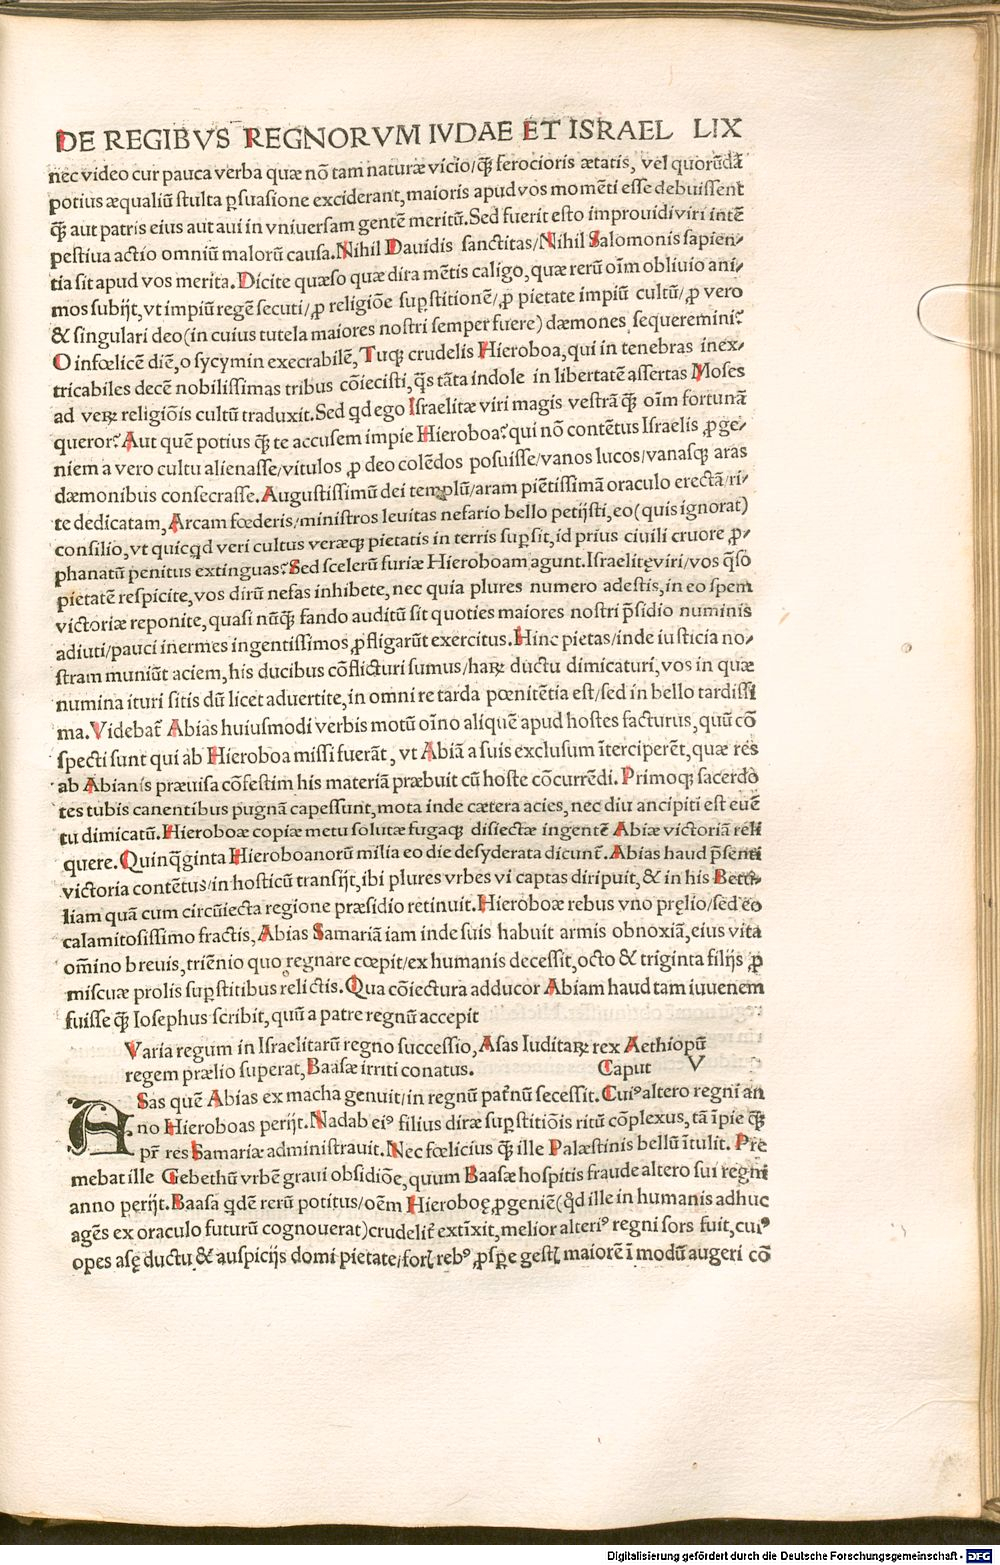 DE REGIBVS REGNORVM IVDAE ET ISRAEL LIX
nec video cur pauca verba quæ nō tam naturæ vicio/q̄ȝ ferocioris ætatis, vel quorūdā
potius æqualiū ſtulta ꝑſuaſione exciderant, maioris apud vos momēti eſſe debuiſſent
q̄ȝ aut patris eius aut aui in vniuerſam gentē meritū. Sed fuerit eſto improuidi viri intē
peſtiua actio omniū malorū cauſa. Nihil Dauidis ſanctitas/Nihil Salomonis ſapien⸗
tia ſit apud vos merita. Dicite quæſo quæ dira mētis caligo, quæ rerū oīm obliuio ani⸗
mos ſubijt, vt impiū regē ſecuti/ꝓ religiōe ſuꝑſtitionē/ꝓ pietate impiū cultū/ꝓ vero
& ſingulari deo (in cuius tutela maiores noſtri ſemper fuere) dæmones ſequeremini?
O infœlicē diē, o ſycymin execrabilē, Tuqȝ crudelis Hieroboa, qui in tenebras inex⸗
tricabiles decē nobiliſſimas tribus cōieciſti, q̄s tāta indole in libertatē aſſertas Moſes
ad veꝝ religiōis cultū traduxit. Sed qd ego Iſraelitæ viri magis veſtrā q̄ȝ oīm fortunā
queror? Aut quē potius q̄ȝ te accuſem impie Hieroboa? qui nō contētus Iſraelis ꝓge⸗
niem a vero cultu alienaſſe/vitulos ꝓ deo colēdos poſuiſſe/vanos lucos/vanaſqȝ aras
dæmonibus conſecraſſe. Auguſtiſſimū dei templū/aram piētiſſimā oraculo erectā/ri⸗
te dedicatam, Arcam fœderis/miniſtros leuitas nefario bello petijſti, eo (quis ignorat)
conſilio, vt quicqd veri cultus veræqȝ pietatis in terris ſuꝑſit, id prius ciuili cruore ꝓ⸗
phanatū penitus extinguas? Sed ſcelerū furiæ Hieroboam agunt. Iſraelitę viri/vos q̄ſo
pietatē reſpicite, vos dirū nefas inhibete, nec quia plures numero adeſtis, in eo ſpem
victoriæ reponite, quaſi nūq̄ȝ fando auditū ſit quoties maiores noſtri p̄ſidio numinis
adiuti/pauci inermes ingentiſſimos ꝓfligarūt exercitus. Hinc pietas/inde iuſticia no⸗
ſtram muniūt aciem, his ducibus cōflicturi ſumus/haꝝ ductu dimicaturi, vos in quæ
numina ituri ſitis dū licet aduertite, in omni re tarda pœnitētia eſt/ſed in bello tardiſſi
ma. Videbat̄ Abias huiuſmodi verbis motū oīno aliquē apud hoſtes facturus, quū cō
ſpecti ſunt qui ab Hieroboa miſſi fuerāt, vt Abiā a ſuis excluſum īterciperēt, quæ res
ab Abianis præuiſa cōfeſtim his materiā præbuit cū hoſte cōcurrēdi. Primoqȝ ſacerdo
tes tubis canentibus pugnā capeſſunt, mota inde cætera acies, nec diu ancipiti eſt euē
tu dimicatū. Hieroboæ copiæ metu ſolutæ fugaqȝ diſiectæ ingentē Abiæ victoriā reli
quere. Quinq̄ginta Hieroboanorū milia eo die deſyderata dicunt̄. Abias haud p̄ſenti
victoria contētus/in hoſticū tranſijt, ibi plures vrbes vi captas diripuit, & in his Bettu⸗
liam quā cum circūiecta regione præſidio retinuit. Hieroboæ rebus vno pręlio/ſed eo
calamitoſiſſimo fractis, Abias Samariā iam inde ſuis habuit armis obnoxiā, eius vita
oīmino breuis, triēnio quo regnare cœpit/ex humanis deceſſit, octo & triginta filijs ꝓ
miſcuæ prolis ſuꝑſtitibus relictis. Qua cōiectura adducor Abiam haud tam iuuenem
fuiſſe q̄ȝ Ioſephus ſcribit, quū a patre regnū accepit
Varia regum in Iſraelitarū regno ſucceſſio, Aſas Iuditaꝝ rex Aethiopū
regem prælio ſuperat, Baaſæ irriti conatus. Caput V
ASas quē Abias ex macha genuit/in regnū pat̄nū ſeceſſit. Cuiꝰ altero regni an
no Hieroboas perijt. Nadab eiꝰ filius diræ ſuꝑſtitiōis ritū cōplexus, tā īpie q̄ȝ
pr̄ res Samariæ adminiſtrauit. Nec fœlicius q̄ȝ ille Palæſtinis bellū ītulit. Pre
mebat ille Gebethū vrbē graui obſidiōe, quum Baaſæ hoſpitis fraude altero ſui regni
anno perijt. Baaſa qdē rerū potitus/oēm Hieroboę ꝓgeniē (qd̄ ille in humanis adhuc
agēs ex oraculo futurū cognouerat) crudelit̄ extīxit, melior alteriꝰ regni ſors fuit, cuiꝰ
opes aſę ductu & auſpicijs domi pietate/forꝭ rebꝰ ꝓſꝑe geſtꝭ maiorē ī modū augeri cō
Digitalisierung gefördert durch die Deutsche Forschungsgemeinschaft - DFG